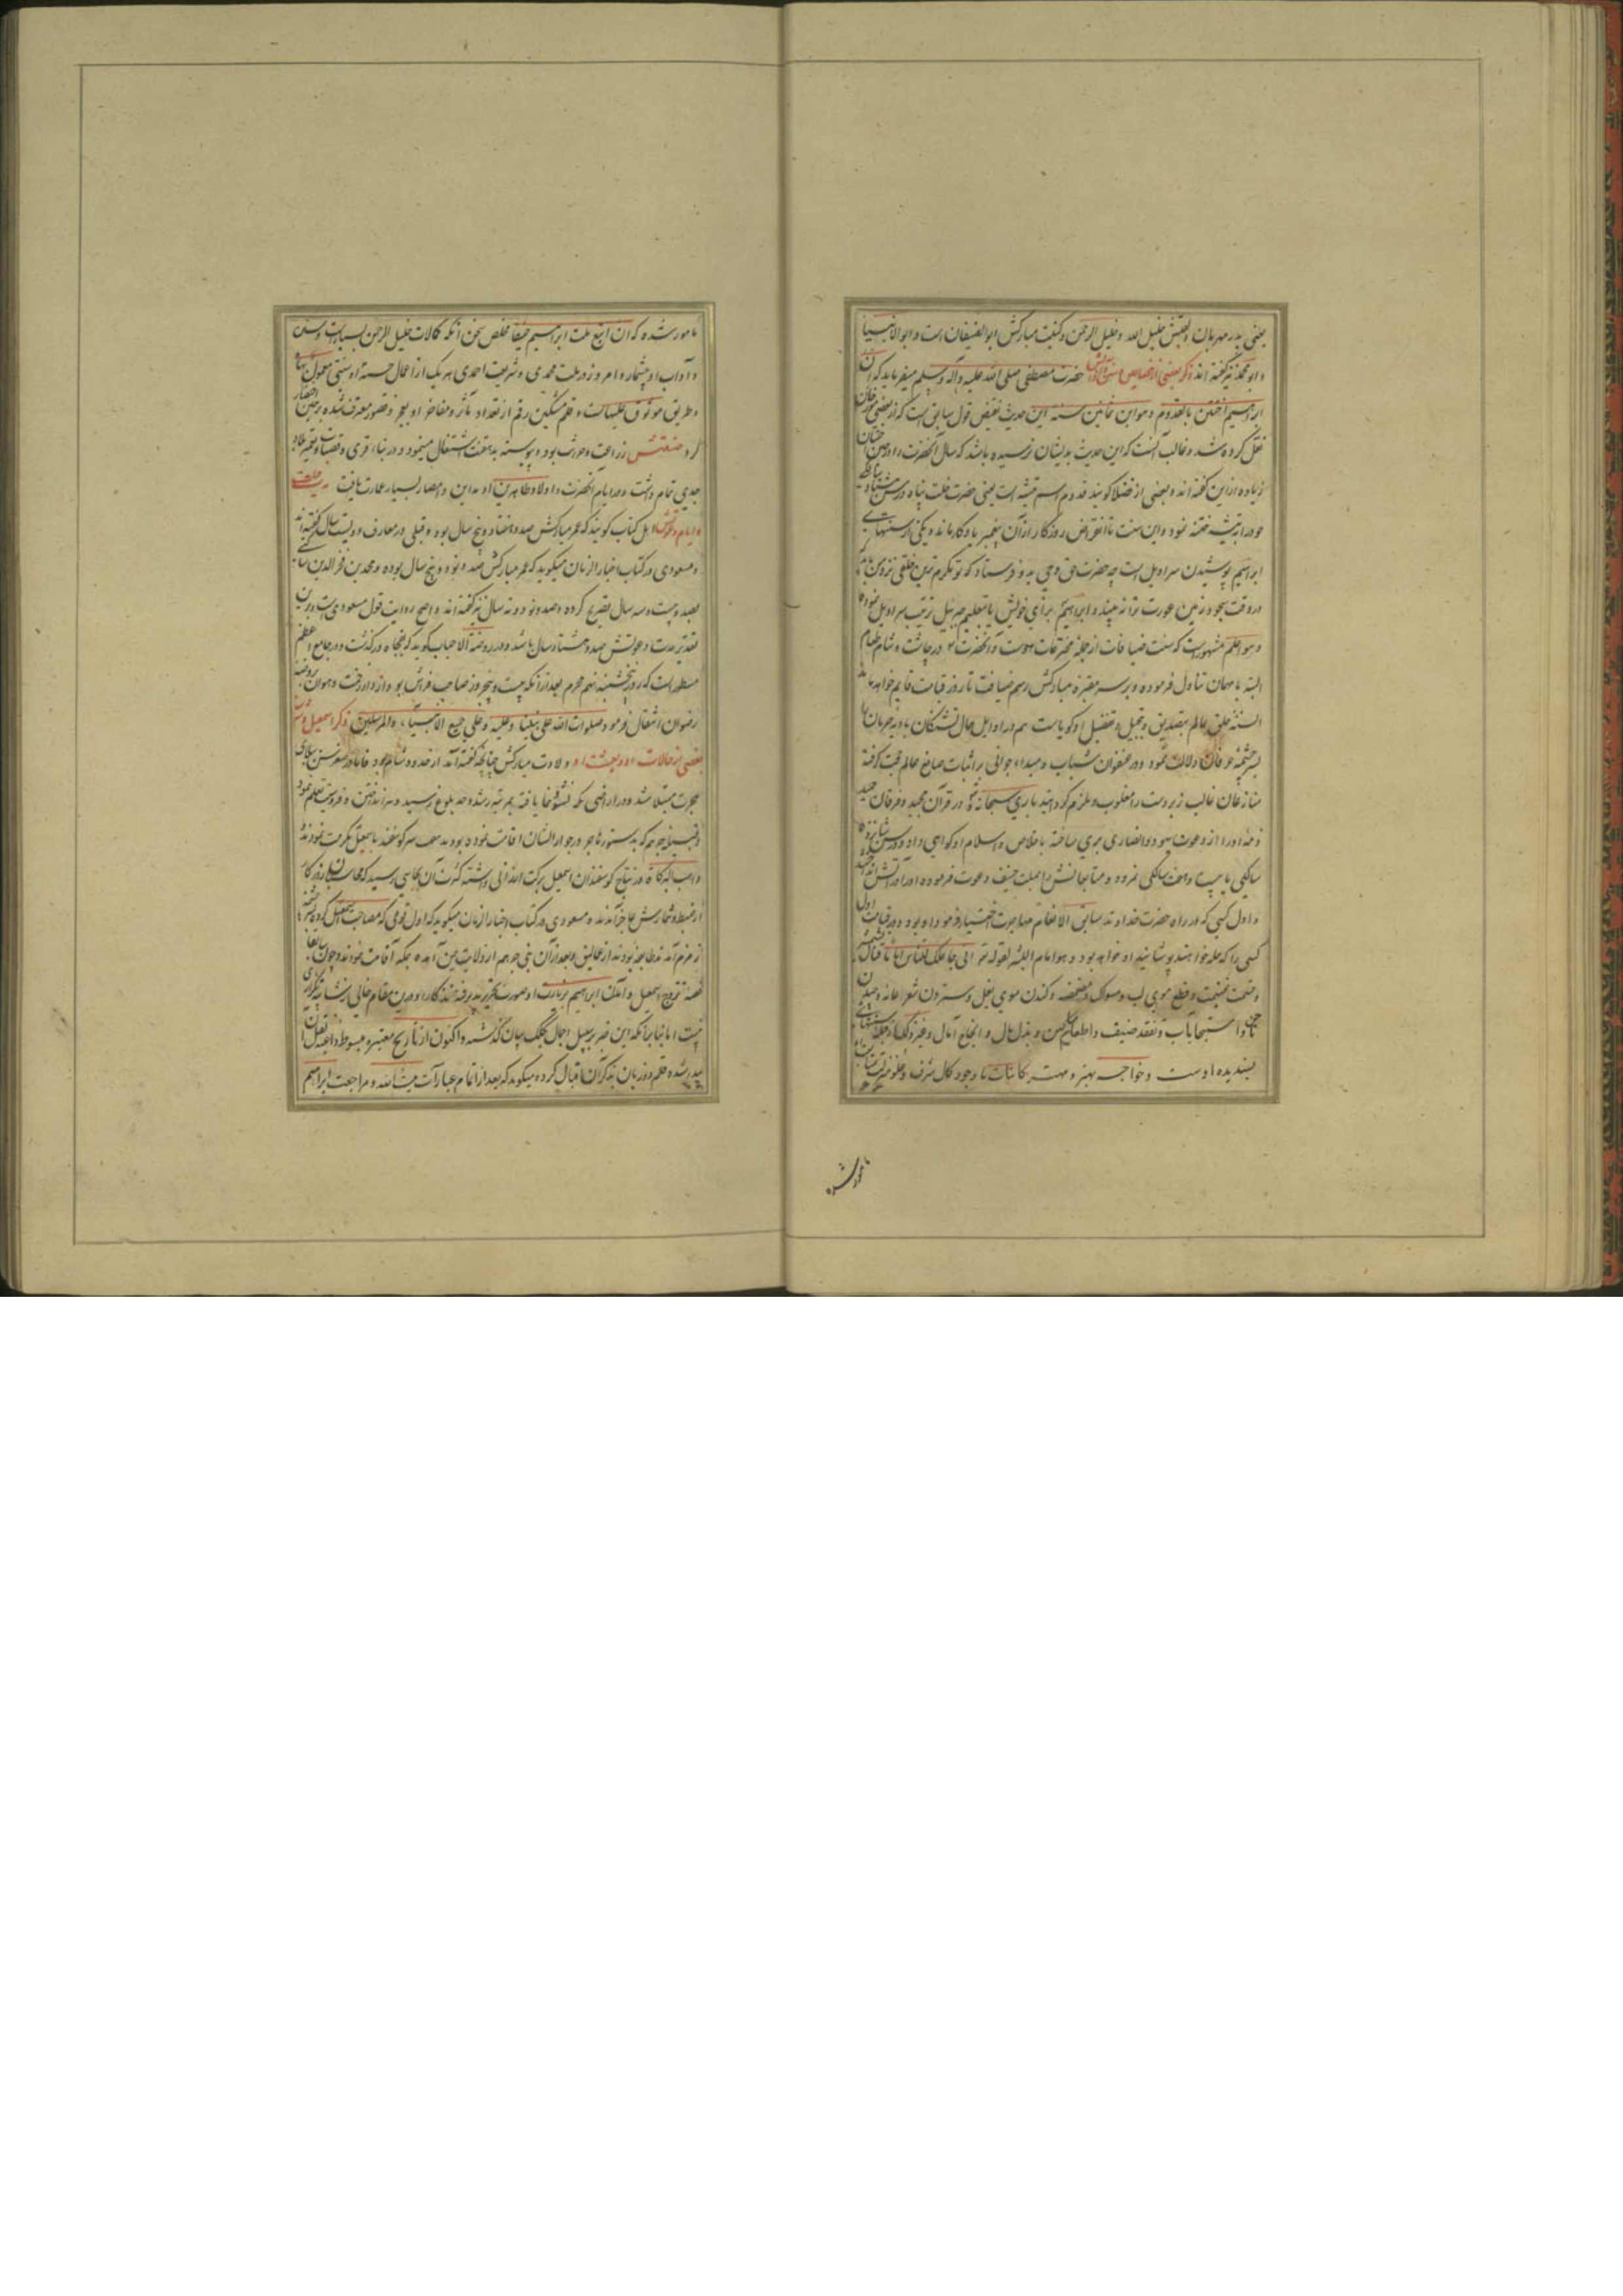 یعنی پدر مهربان و لقبش خلیل الله و خلیل الرحمن و کنیت مبارکش ابوالضیفان است و ابوالانبیا
و ابو محمد نیز گفته اند ذکر بعضی از خصایص و سنن حضرت مصطفی صلی الله علیه و آله و سلم میفرماید که ان
ابراهیم اختتن بالقدوم و هو ابن ثمانین سنه این حدیث نقیض قول سابق است که از بعضی مورخان
نقل کرده شد و غالب آنست که این حدیث بدیشان نرسیده باشد که سال آنحضرت را در حین ختان
زیاده ازین گفته اند و بعضی از فضلا گویند قدوم اسم تیشه است یعنی حضرت خلت پناه در سن هشتاد
خود را به تیشه ختنه نمود و این سنت تا انقراض روزگار از آن پیغمبر یادگار ماند و یکی از سنتهای
ابراهیم پوشیدن سراویل است چه حضرت حق وحی بدو فرستاد که تو مکرم ترین خلقی نزد من باید که
در وقت سجود زمین عورت ترا نه بیند و ابراهیم برای خویش بتعلیم جبرئیل ترتیب سراویل نمود
و هو اعلم مشهورست که سنت ضیافات از جمله مخترعات اوست و آنحضرت در چاشت و شام طعام
البته با مهمان تناول فرموده و بر سر مقبره مبارکش رسم ضیافت تا روز قیامت قایم خواهد ماند
السنه خلق عالم بتصدیق و تبجیل و تفضیل او گویاست هم در اوایل حال تشنگان بادیه حرمان را
بسرچشمه عرفان دلالت نمود و در عنفوان شباب و مبداء جوانی بر اثبات صانع عالم حجت گرفته
منازعان غالب زبردست را مغلوب و ملزم گردانید باری سبحانه و تعالی در قرآن مجید و فرقان حمید
ذمه او را از دعوت یهود و نصاری بری ساخته باخلاص و اسلام او گواهی داد و در سن شانزده
سالگی یا بیست و هفت سالگی نمرود و متابعانش را بملت حنیف دعوت فرموده او را در آتش انداختند
و اول کسی که در راه حضرت خداوند سابق الانعام مهاجرت اختیار فرمود او بود و در قیامت اول
کسی را که حله خواهند پوشانید او خواهد بود و هو امام الناس لقوله تع انی جاعلک للناس اماما قال
و قسمت غنیمت و قطع موی لب و مسواک و مضمضه و کندن موی بغل و ستردن شعر عانه و چیدن
ناخن و استنجا بآب و تفقد ضعیف و اطعام مساکین و بذل مال و انجاح آمال و غیر ذلک از جمله سنتهای
پسندیده اوست و خواجه بهتر و مهتر کاینات با وجود کمال شرف و علو منزلت بمتابعت او
مامور شده
مامور شده که ان اتبع ملت ابراهیم حنیفا مخلص سخن آنکه کمالات خلیل الرحمن بسیارست و سنن
و آداب او بیشمار و امروز در ملت محمدی و شریعت احمدی هر یک از اعمال حسنه او سنتی معمول بها
و طریق موثوق علیهاست و قلم مشکین رقم از تعداد مآثر و مفاخر او بعجز و قصور معترف شده برین اختصار
کرد صنعتش زراعت و حرث بود و پیوسته بدهقنت اشتغال مینمود و در بناء قری و قصبات و تعمیر بلاد
جدی تمام داشت و در ایام آنحضرت و اولاد طاهرین او مداین و امصار بسیار عمارت یافت مدت حیات
و ایام دعوت او اهل کتاب گویند که عمر مبارکش صد و هفتاد و پنج سال بود و قتیبی در معارف دویست سال گفته اند
و مسعودی در کتاب اخبار الزمان میگوید که عمر مبارکش صد و نود و پنج سال بوده و محمد بن فخر الدین
بصد و بیست و سه سال تصریح کرده و صد و نود و نه سال نیز گفته اند و اصح روایت قول مسعودی است و برین
تقدیر مدت دعوتش صد و هشتاد سال باشد و در روضة الاحباب گوید که بفجاه درگذشت و در جامع اعظم
مسطور است که روز پنجشنبه نهم محرم بعد از آنکه بیست و پنج روز صاحب فراش بود از دار رخت و هوان بروضه
رضوان انتقال فرمود صلوات الله علی نبینا و علیه و علی جمیع الانبیاء و المرسلین ذکر اسمعیل و شرح
بعضی از حالات او و بعثت او ولادت مبارکش چنانچه گفته آمد از حدود شام بود فاما در صغر سن ببلای
هجرت مبتلا شد و در اراضی مکه نشو و نما یافته بمرتبه رشد و حد بلوغ رسید و تیرانداختن و فروسیت تعلم نمود
و قبیله جرهم که بدستور هاجر در جوار ایشان اقامت نموده بودند هفت سر گوسفند باسمعیل مکرمت نمودند
واهب البرکات در نتاج گوسفندان اسمعیل برکت ارزانی داشته کثرت آن بجایی رسید که محاسبان روزگار
از ضبط و شمارش عاجز آمدند و مسعودی در کتاب اخبار الزمان میگوید که اول قومی که مصاحب اسمعیل گردیدند بر سر چشمه
زمزم آمدند طایفه بودند از عمالیق و بعد از آن بنی جرهم از ولایت یمن آمده بمکه اقامت نمودند و چون سابقا
قصه تزوج اسمعیل و آمدن ابراهیم بزیارت او صورت تحریر پذیرفته تذکار او درین مقام خالی از شایبه تکراری
نیست اما بنا بر آنکه این خبر بسبیل اجمال بیان گذشته و اکنون از تاریخ معتبره مبسوط داعیه نقل آن
پیدا شده قلم دو زبان بذکر آن اقبال کرده میگوید که بعد از اتمام عمارت بیت الله و مراجعت ابراهیم